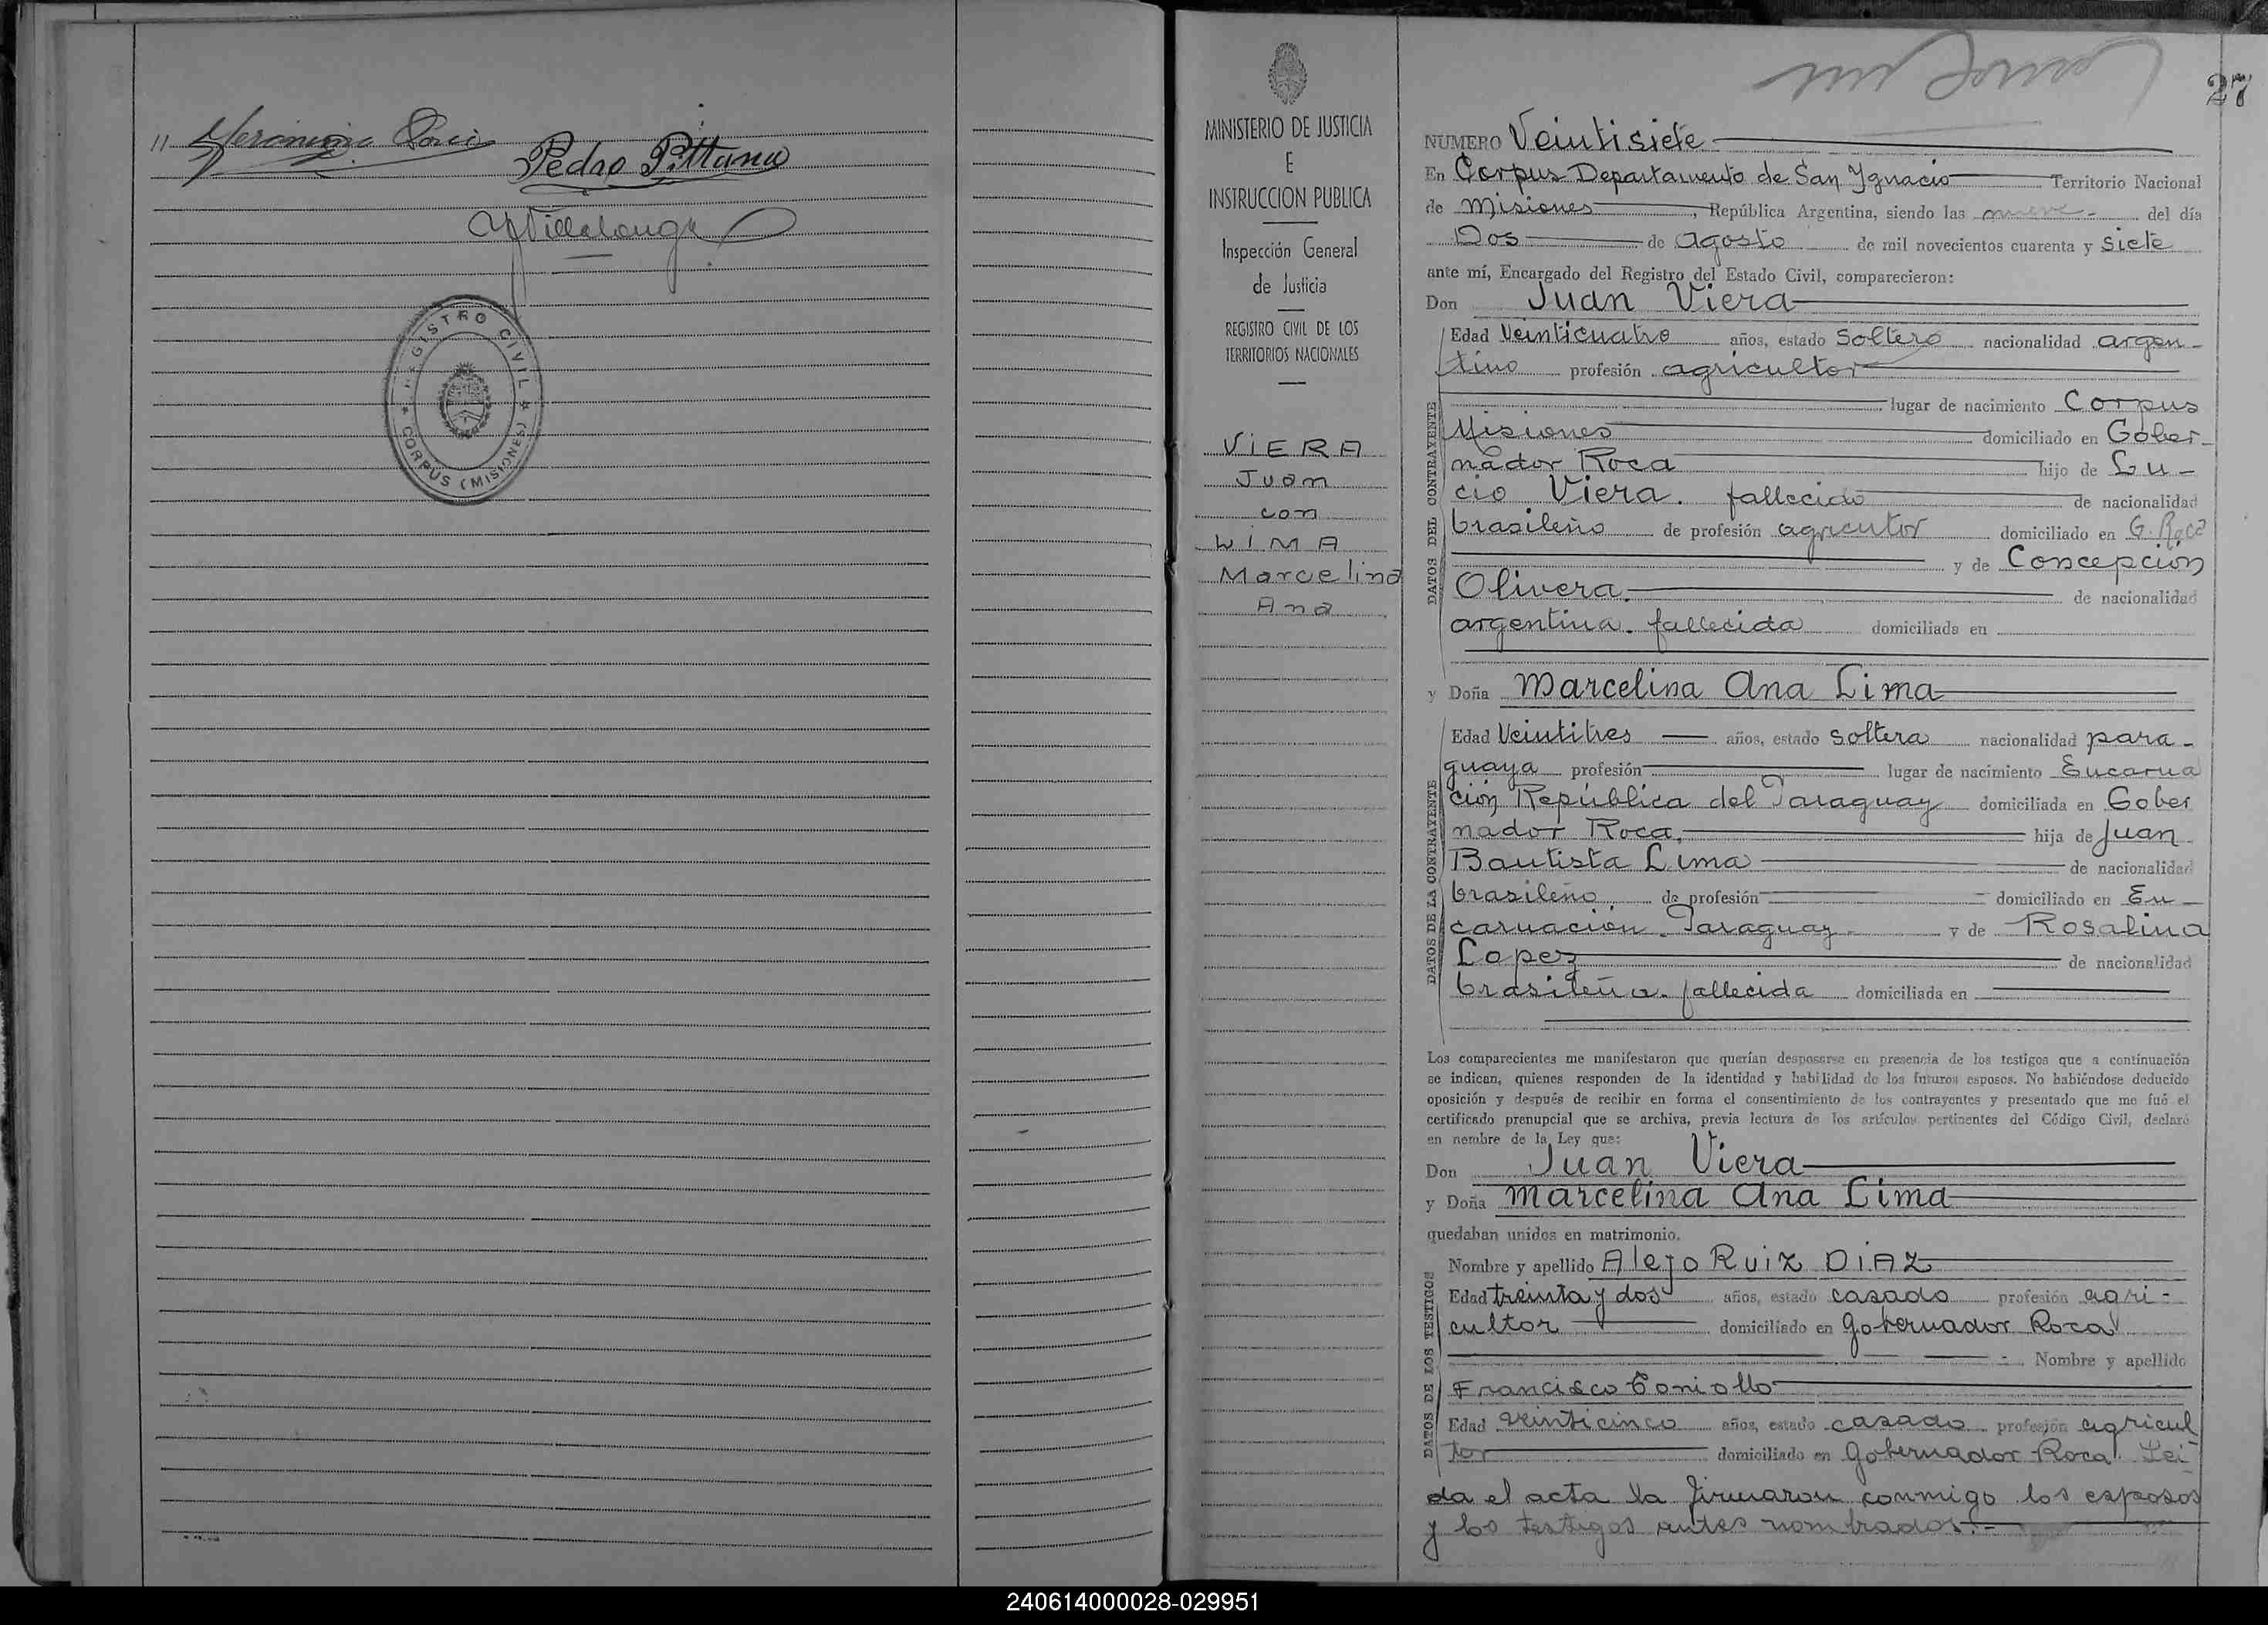 Pedro Pittana
REGISTRO CIVIL
CORPUS (MISIONES)
MINISTERIO DE JUSTICIA
E
INSTRUCCION PUBLICA
Inspección General
de Justicia
REGISTRO CIVIL DE LOS
TERRITORIOS NACIONALES
VIERA
Juan
con
LIMA
Marcelina
Ana
27
NUMERO Veintisiete
En Corpus Departamento de San Ygnacio Territorio Nacional
de Misiones, República Argentina, siendo las nueve del día
Dos de agosto de mil novecientos cuarenta y siete
ante mí, Encargado del Registro del Estado Civil, comparecieron:
Don Juan Viera
DATOS DEL CONTRAYENTE
Edad Veinticuatro años, estado soltero nacionalidad argen-
tino profesión agricultor
lugar de nacimiento Corpus
Misiones domiciliado en Gober-
nador Roca hijo de Lu-
cio Viera. fallecido de nacionalidad
brasileño de profesión agricutor domiciliado en G. Roca
y de Concepción
Olivera. de nacionalidad
argentina. fallecida domiciliada en
y Doña Marcelina Ana Lima
DATOS DE LA CONTRAYENTE
Edad Veintitres años, estado soltera nacionalidad para-
guaya profesión lugar de nacimiento Encarna
ción República del Paraguay domiciliada en Gober
nador Roca. hija de Juan
Bautista Lima de nacionalidad
brasileño de profesión domiciliado en En-
carnación. Paraguay y de Rosalina
Lopez de nacionalidad
brasileña. fallecida domiciliada en
Los comparecientes me manifestaron que querían desposarse en presencia de los testigos que a continuación
se indican, quienes responden de la identidad y habilidad de los futuros esposos. No habiéndose deducido
oposición y después de recibir en forma el consentimiento de los contrayentes y presentado que me fué el
certificado prenupcial que se archiva, previa lectura de los artículos pertinentes del Código Civil, declaré
en nombre de la Ley que:
Don Juan Viera
y Doña Marcelina Ana Lima
quedaban unidos en matrimonio.
DATOS DE LOS TESTIGOS
Nombre y apellido Alejo Ruiz DIAZ
Edad treinta y dos años, estado casado profesión agri-
cultor domiciliado en Gobernador Roca
Nombre y apellido
Francisco Toniollo
Edad veinticinco años, estado casado profesión agricul
tor domiciliado en Gobernador Roca Lei-
da el acta la firmaron conmigo los esposos
y los testigos antes nombrados.-
240614000028-029951